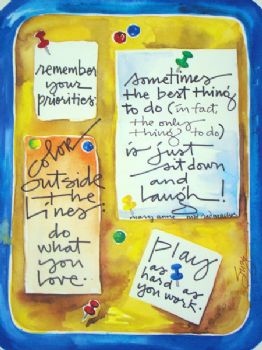 remember
your
priorities.
sometimes
the best thing
to do (in fact,
the only
thing to do)
is just
sit down
and
laugh!
mary anne
color
outside
the
lines.
do
what
you
love.
play
as as
hard
you work.